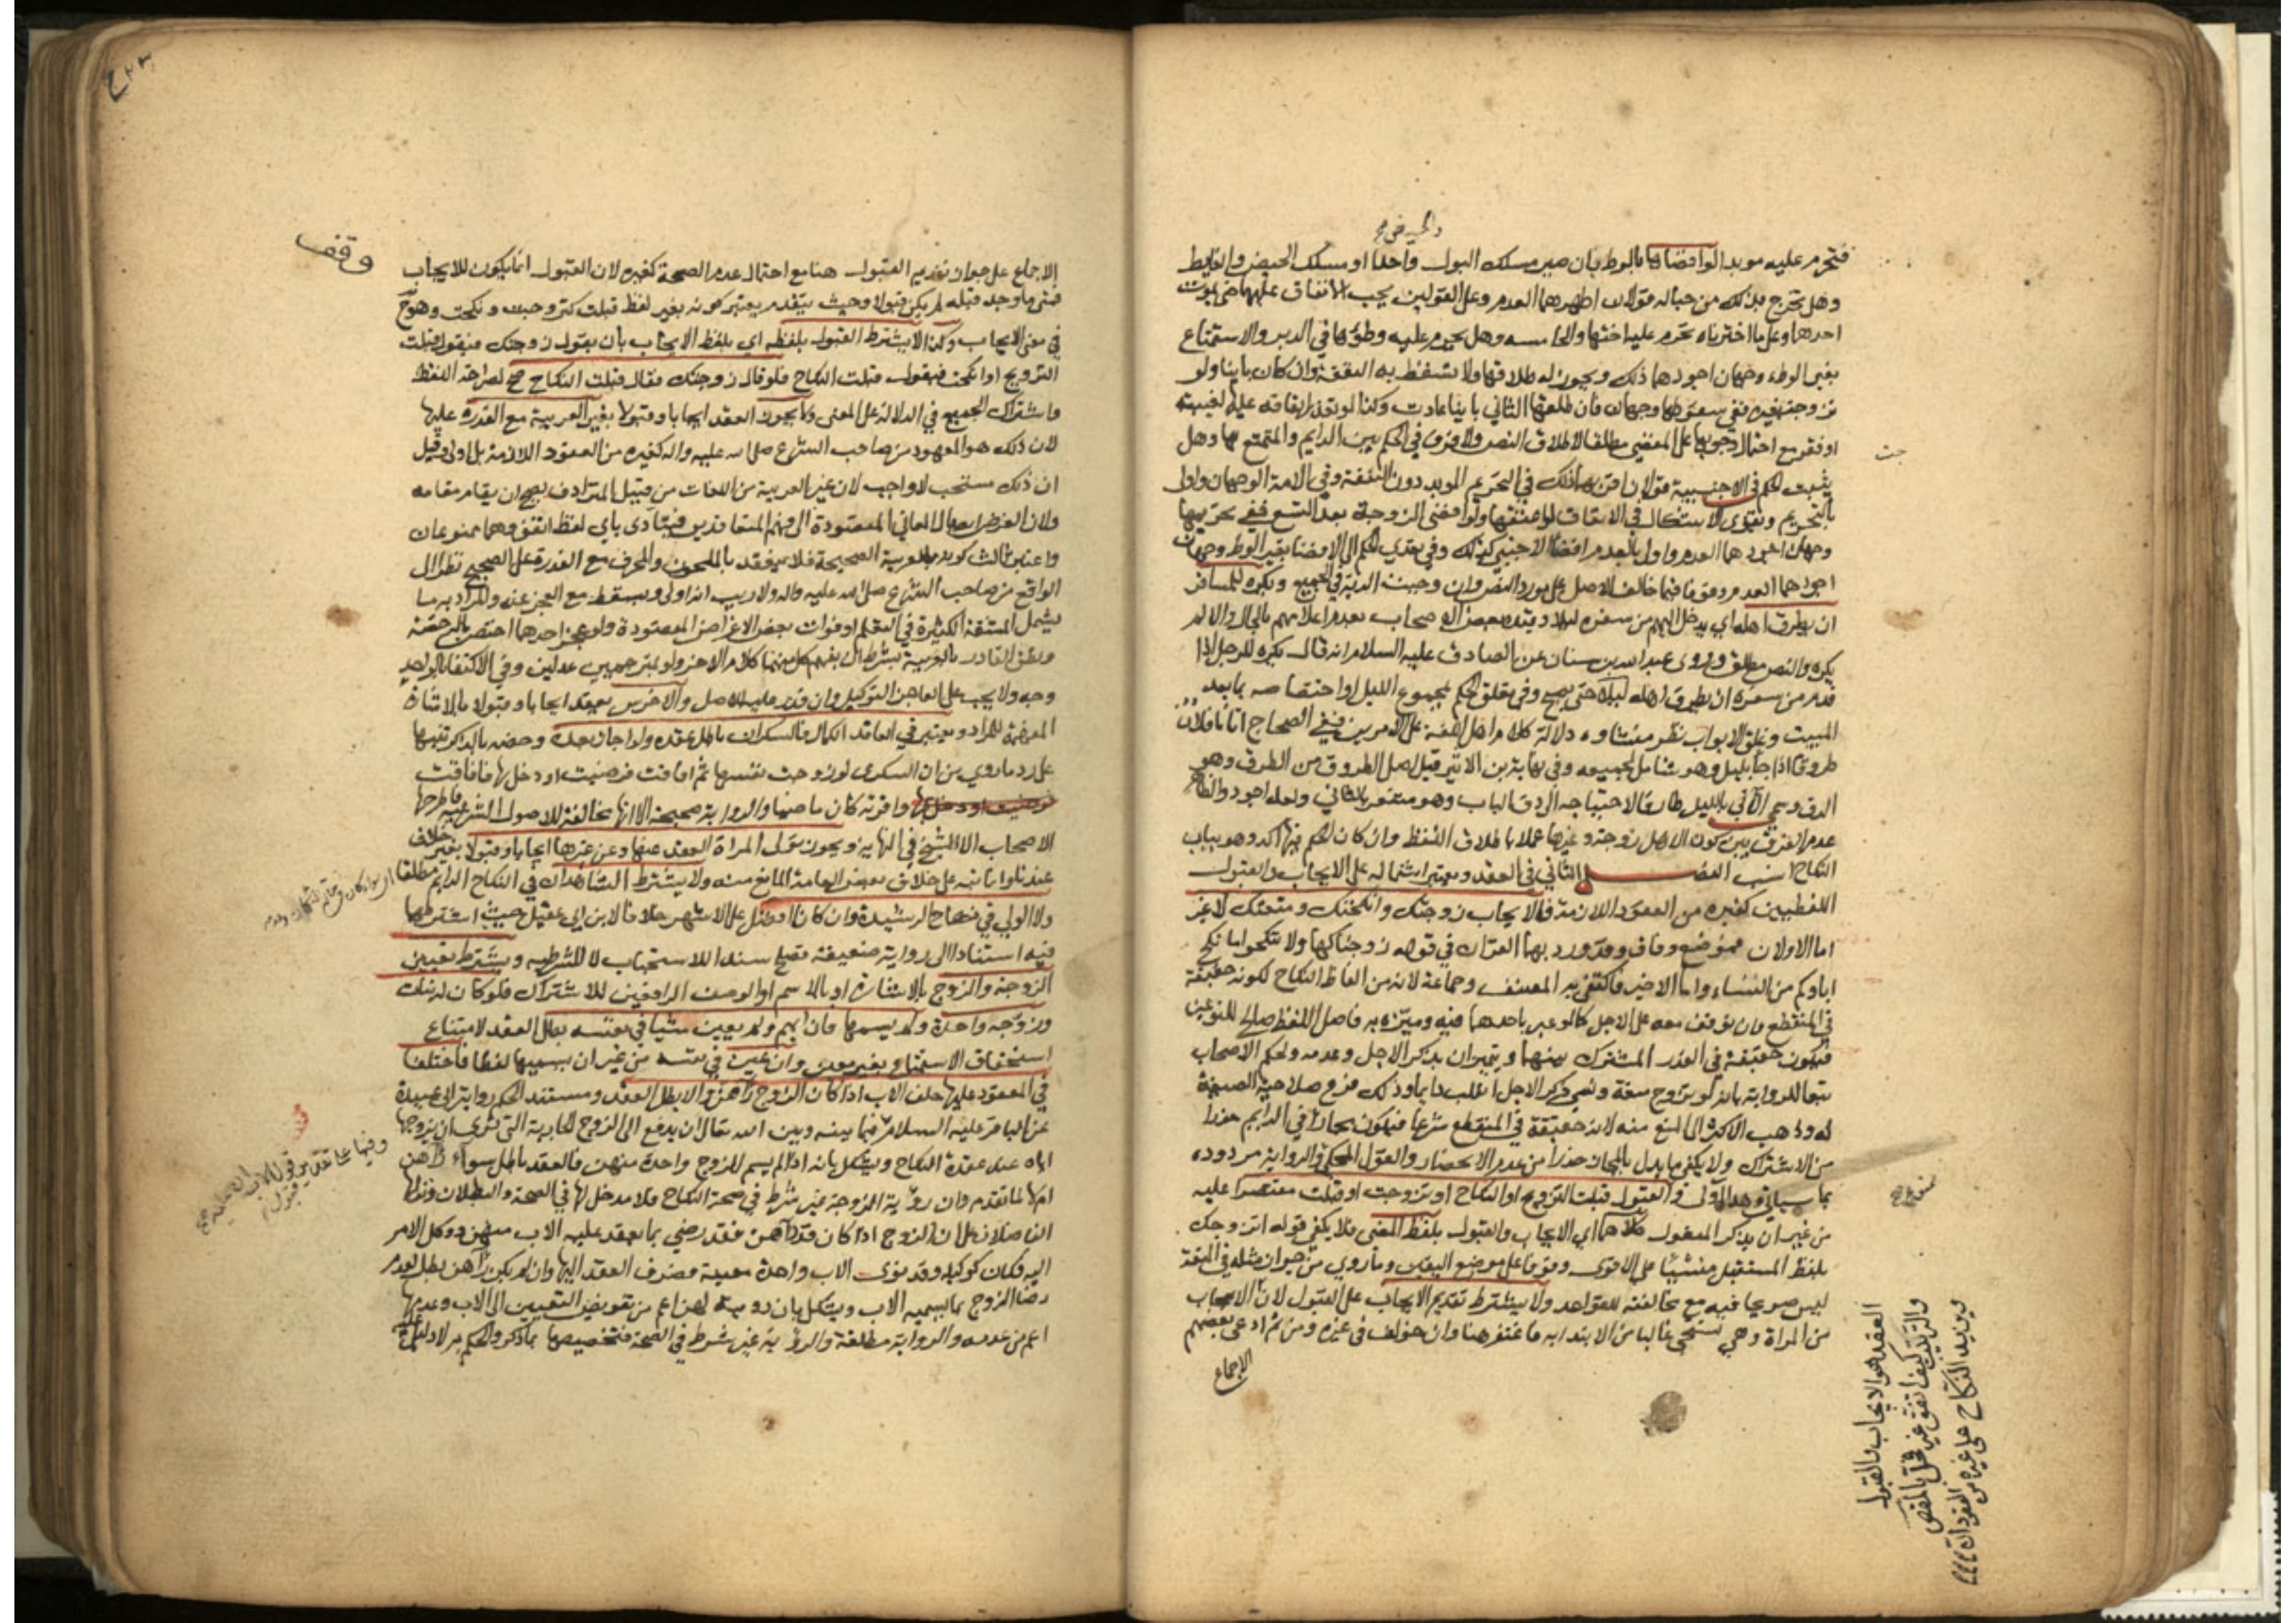 والحيض صح
فتحرم عليه مؤبدا لو افضاها بالوطء بان صير مسلك البول واحدا او مسلك الحيض والغايط
وهل تخرج بذلك من حباله قولان اظهرهما العدم وعلى القولين يجب الانفاق عليها حتى يموت
احدهما وعلى ما اخترناه تحرم عليه اختها والخامسه وهل يحرم عليه وطؤها في الدبر والاستمتاع
بغير الوطء وجهان اجودهما ذلك ويجوز له طلاقها ولا تسقط به النفقة وان كان باينا ولو
تزوجت بغيره ففي سقوطها وجهان فان طلقها الثاني باينا عادت وكذا لو تعذر انفاقه عليها لغيبته
او فقر مع احتمال وجوبها على المفضي مطلقا لاطلاق النص ولا فرق في الحكم بين الدايم والمتمتع بها وهل
يثبت الحكم في الاجنبية قولان اقربهما ذلك في التحريم المؤبد دون النفقة وفي الامة الوجهان واولى
بالتحريم ويقوى الاشكال في الانفاق لو اعتقها ولو افضى الزوجة بعد التسع ففي تحريمها
وجهان اجودهما العدم واولى بالعدم افضاء الاجنبي كذلك وفي تعدي الحكم الى الافضاء بغير الوطء وجهان
اجودهما العدم وقوفا فيما خالف الاصل على مورد النص وان وجبت الدية في الجميع ويكره للمسافر
ان يطرق اهله اي يدخل اليهم من سفره ليلا وقيده بعض الاصحاب بعدم اعلامهم بالحال والا لم
يكره والنص مطلق وروى عبد الله بن سنان عن الصادق عليه السلام انه قال يكره للرجل اذا
قدم من سفره ان يطرق اهله ليلا حتى يصبح وفي تعلق الحكم بمجموع الليل او اختصاصه بما بعد
المبيت وغلق الابواب نظر منشاوه دلالة كلام اهل اللغة على الامرين ففي الصحاح اتانا فلان
طروقا اذا جاء بليل وهو شامل لجميعه وفي نهاية بن الاثير قيل اصل الطروق من الطرق وهو
الدق وسمي الاتي بالليل طارقا لاحتياجه الى دق الباب وهو مشعر بالثاني ولعله اجود والظاهر
عدم الفرق بين كون الاهل زوجة وغيرها عملا باطلاق اللفظ وان كان الحكم فيها اكد وهو بباب
النكاح انسب الفصل الثاني في العقد ويعتبر اشتماله على الايجاب والقبول
اللفظيين كغيره من العقود اللازمة فالايجاب زوجتك وانكحتك ومتعتك لا غير
اما الاولان فموضع وفاق وقد ورد بهما القران في قوله زوجناكها ولا تنكحوا ما نكح
اباوكم من النساء واما الاخير فاكتفى به المصنف وجماعة لانه من الفاظ النكاح لكونه حقيقة
في المنقطع وان توقف معه على الاجل كما لو عبر باحدهما فيه وميزه به فاصل اللفظ صالح للنوعين
فيكون حقيقة في القدر المشترك بينهما ويتميزان بذكر الاجل وعدمه ولحكم الاصحاب
تبعا للرواية بانه لو تزوج متعة ونسي ذكر الاجل انقلب دايما وذلك فرع صلاحية الصيغة
له وذهب الاكثر الى المنع منه لانه حقيقة في المنقطع شرعا فيكون مجازا في الدايم حذرا
من الاشتراك ولا يكفي ما يدل بالمجاز حذرا من عدم الانحصار والقول المحكي والرواية مردوده
بما سياتي وهذا اولى والقبول قبلت التزويج او النكاح او تزوجت او قبلت مقتصرا عليه
من غير ان يذكر المفعول كلاهما اي الايجاب والقبول بلفظ المضي فلا يكفي قوله اتزوجك
بلفظ المستقبل منشيًا على الاقوى وقوفا على موضع اليقين وما روي من جواز مثله في المتعة
ليس صريحا فيه مع مخالفته للقواعد ولا يشترط تقديم الايجاب على القبول لان الايجاب
من المراة وهي تستحي غالبا من الابتدا به فاغتفر هنا وان خولف في غيره ومن ثم ادعى بعضهم
الاجماع
العقد هو الايجاب والقبول
وقف
الاجماع على جواز تقديم القبول هنا مع احتمال عدم الصحة كغيره لان القبول انما يكون للايجاب
فمتى ما وجد قبله لم يكن قبولا وحيث يتقدم يعتبر كونه بغير لفظ قبلت كتزوجت ونكحت وهو ح
في معنى الايجاب وكذا لا يشترط القبول بلفظه اي بلفظ الايجاب بان يقول زوجتك فيقول قبلت
التزويج او انكحتك فيقول قبلت النكاح فلو قال زوجتك فقال قبلت النكاح صح لصراحة اللفظ
واشتراك الجميع في الدلالة على المعنى ولا يجوز العقد ايجابا وقبولا بغير العربية مع القدرة عليها
لان ذلك هو المعهود من صاحب الشرع صلى الله عليه واله كغيره من العقود اللازمة بل اولى وقيل
ان ذلك مستحب لا واجب لان غير العربية من اللغات من قبيل المترادف يصح ان يقام مقامه
ولان الغرض ايصال المعاني المقصودة الى فهم المتعاقدين فيتادى باي لفظ اتفق وهما ممنوعان
واعتبر ثالث كونه بالعربية الصحيحة فلا ينعقد بالملحون والمحرف مع القدرة على الصحيح نظرا الى
الواقع من صاحب الشرع صلى الله عليه واله ولا ريب انه اولى ويسقط مع العجز عنه والمراد به ما
يشمل المشقة الكثيرة في التعلم او فوات بعض الاغراض المقصودة ولو عجز احدهما اختص بالرخصة
ونطق القادر بالعربية بشرط ان يفهم كل منهما كلام الاخر ولو بمترجمين عدلين وفي الاكتفا بالواحد
وجه ولا يجب على العاجز التوكيل وان قدر عليه للاصل والاخرس يعقد ايجابا وقبولا بالاشارة
المفهمة للمراد ويعتبر في العاقد الكمال فالسكران باطل عقده ولو اجاز بعده وخصه بالذكر تنبيها
على رد ما روي من ان السكرى لو زوجت نفسها ثم افاقت فرضيت او دخل بها فافاقت
واقرته كان ماضيا والرواية صحيحة الا انها مخالفة للاصول الشرعية فاطرحها
الاصحاب الا الشيخ في النهاية ويجوز تولي المراة العقد عنها وعن غيرها ايجابا وقبولا بغير خلاف
عندنا وانما نبه على خلاف بعض العامة المانع منه ولا يشترط الشاهدان في النكاح الدايم مطلقا
ولا الولي في نكاح الرشيدة وان كان افضل على الاشهر خلافا لابن ابي عقيل حيث اشترطهما
فيه استنادا الى رواية ضعيفة تصلح سندا للاستحباب لا للشرطيه ويشترط تعيين
الزوجة والزوج بالاشارة او بالاسم او الوصف الرافعين للاشتراك فلو كان له بنات
وزوجه واحدة ولم يسمها فان ابهم ولم يعين شيا في نفسه بطل العقد لامتناع
استحقاق الاستمتاع بغير معين وان عين في نفسه من غير ان يسميها لفظا فاختلفا
في المعقود عليها حلف الاب اذا كان الزوج راهن والا بطل العقد ومستند الحكم رواية ابي عبيدة
عن الباقر عليه السلام وفيها بينه وبين الله تعالى ان يدفع الى الزوج الجارية التي نوى ان يزوجها
اياه عند عقدة النكاح ويشكل بانه اذا لم يسم للزوج واحدة منهن فالعقد باطل سواء رآهن
ام لا لما تقدم وان رؤية الزوجة غير شرط في صحة النكاح فلا مدخل لها في الصحة والبطلان ونزلها
الفاضلان على ان الزوج اذا كان قد رآهن فقد رضي بما يعقد عليه الاب منهن ووكل الامر
اليه فكان كوكيله وقد نوى الاب واحدة معينة فصرف العقد اليها وان لم يكن رآهن بطل لعدم
رضا الزوج بما يسميه الاب ويشكل بان رؤيته لهن اعم من تفويض التعيين الى الاب وعدمها
اعم من عدمه والرواية مطلقة والرؤية غير شرط في الصحة فتخصيصها بما ذكر والحكم به لا دليل عليه